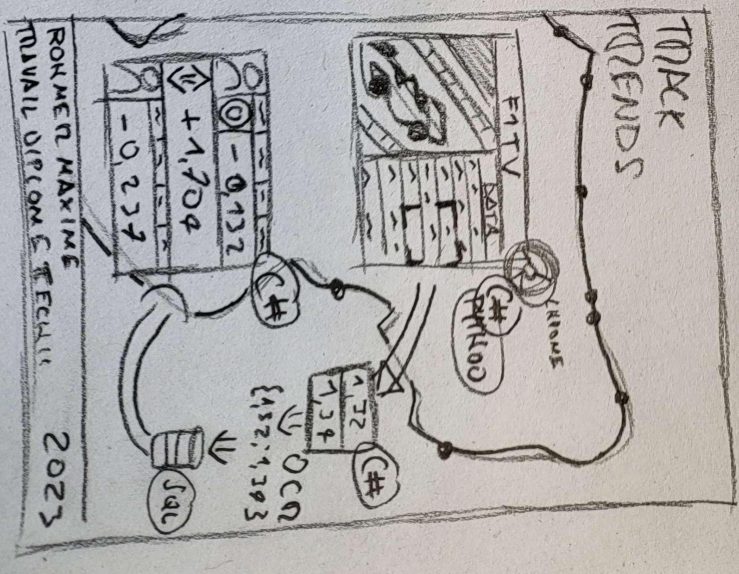 TRACK
TRENDS
F1TV
DATA
CHROME
C#
PYTHON
1,72
1,34
C#
OCR
{1,52;1,34}
SQL
C#
-0,132
+1,704
-0,237
ROHMER MAXIME
TRAVAIL DIPLOME TECH II
2023